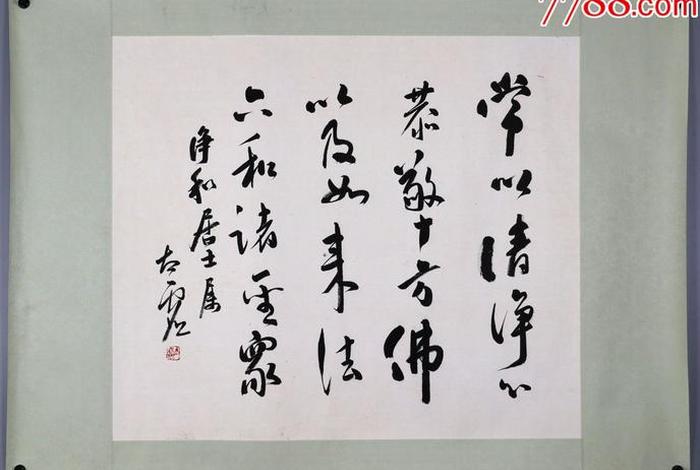 常以清净心
恭敬十方佛
以及如来法
六和诸圣众
净和居士属
太虚
7788.com